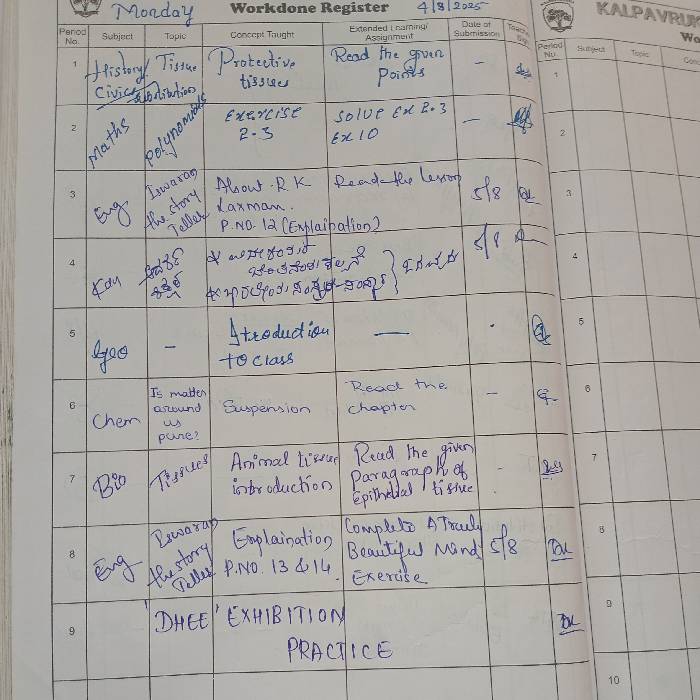 Monday
Workdone Register
4/8/2025
KALPAVRU
Wo
Period No.
Subject
Topic
Concept Taught
Extended Learning/ Assignment
Date of Submission
Period No.
Subject
Topic
Conc
1
History/ Civics
Tissue
substitution
Protective tissues
Read the given points
-
2
Maths
Polynomials
Exercise 2.3
Solve Ex 2.3
Ex 10
-
3
Eng
Iswaran the story Teller
About R.K Laxman.
P.NO. 12 (Explaination)
Read the lesson
5/8
4
Kan
5/8
5
Geo
-
Itroduction to class
-
6
Chem
Is matter around us pure?
Suspension
Read the chapter
-
7
Bio
Tissues
Animal tissue introduction
Read the given Paragraph of epithelial tissue.
-
8
Eng
Iswaran the story Teller
Explaination P.NO. 13 & 14.
Complete A Truely Beautiful Mind Exercise
5/8
9
'DHEE' EXHIBITION
PRACTICE
1
2
3
4
5
6
7
8
9
10